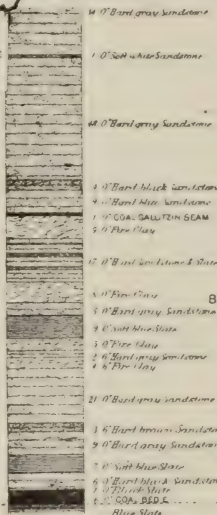 0" Hard gray Sandstone
1 0" Soft white Sandstone
48 0" Hard gray Sandstone
4 0" Hard black Sandstone
Hard blue Sandstone
0" COAL GALLITZIN SEAM
0" Fire Clay
0" Hard Sandstone & Slate
0" Fire Clay
B
0" Hard gray Sandstone
0" Soft blue Slate
0" Fire Clay
2 6" Hard gray Sandstone
6" Fire Clay
21 0" Hard gray sandstone
3 6" Hard brown Sandsto
9 0" Hard gray Sandston
7 0" Soft blue Slate
6 0" Hard black Sandston
0" Black Slate
0" COAL BED E
Blue Slate